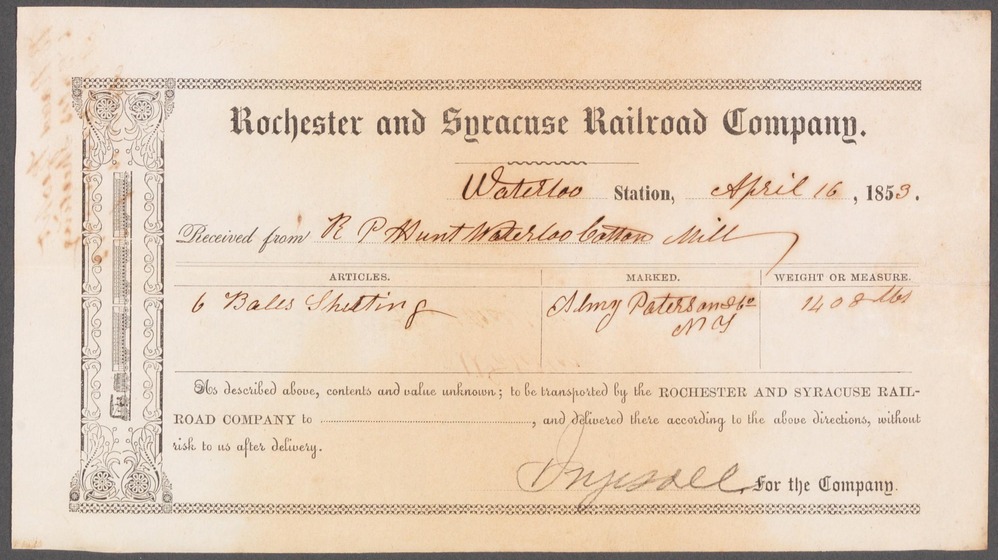 Rochester and Syracuse Railroad Company.
Waterloo Station, April 16, 1853.
Received from R P Hunt Waterloo Cotton Mill
ARTICLES. MARKED. WEIGHT OR MEASURE.
6 Bales Sheeting Almy Paterson & Co 1408 lbs
N Y
As described above, contents and value unknown; to be transported by the ROCHESTER AND SYRACUSE RAIL-
ROAD COMPANY to , and delivered there according to the above directions, without
risk to us after delivery.
For the Company.